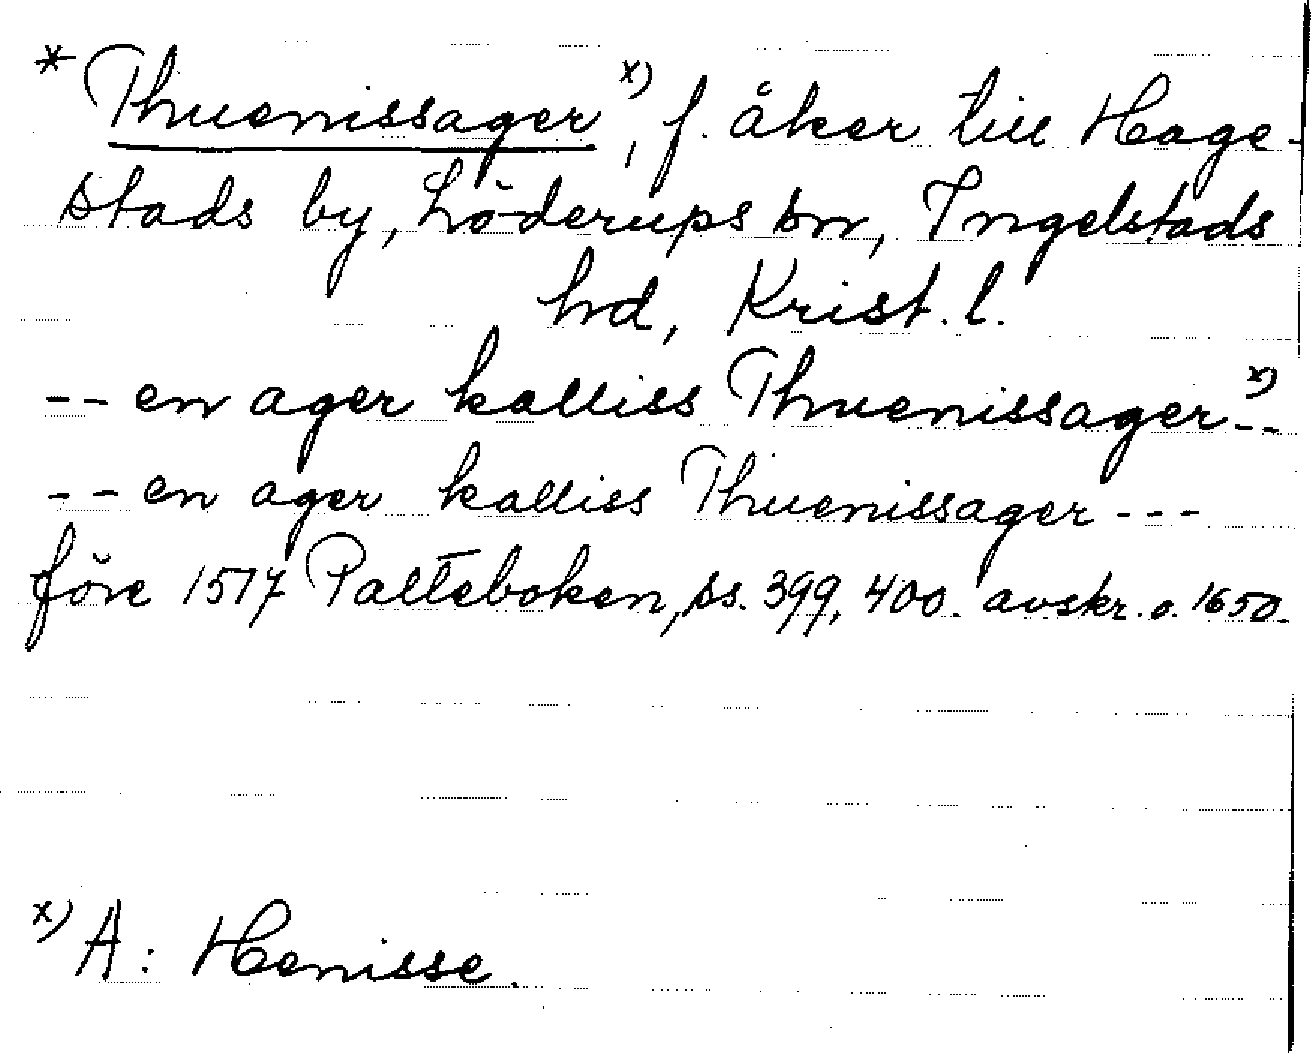 * Thuenissager x), f. åker till Hage-
stads by, Löderups sn, Ingelstads
hd, Krist. l.
-- en ager kalliss Thuenissager x) --
-- en ager kalliss Thuenissager ---
före 1517 Palteboken, ss. 399, 400. avskr. o. 1650.
x) A: Henisse.